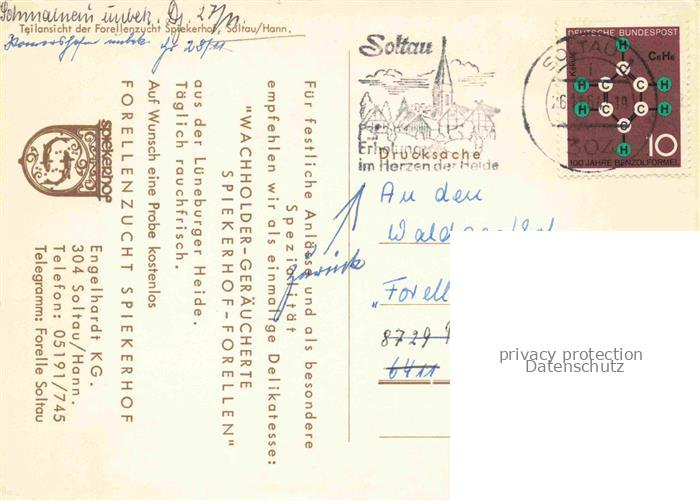 Teilansicht der Forellenzucht Spiekerhof, Soltau/Hann.
Für festliche Anlässe und als besondere
Spezialität
empfehlen wir als einmalige Delikatesse:
"WACHHOLDER-GERÄUCHERTE
SPIEKERHOF-FORELLEN"
aus der Lüneburger Heide.
Täglich rauchfrisch.
Auf Wunsch eine Probe kostenlos
FORELLENZUCHT SPIEKERHOF
spiekerhof
Engelhardt KG.
304 Soltau/Hann.
Telefon: 05191/745
Telegramm: Forelle Soltau
Soltau
Erholung
im Herzen der Heide
Drucksache
SOLTAU
304
DEUTSCHE BUNDESPOST
C6H6
H
H C C H
H C C H
C
H
10
100 JAHRE BENZOLFORMEL
zurück
An den
"Forell
8729
6411
privacy protection
Datenschutz